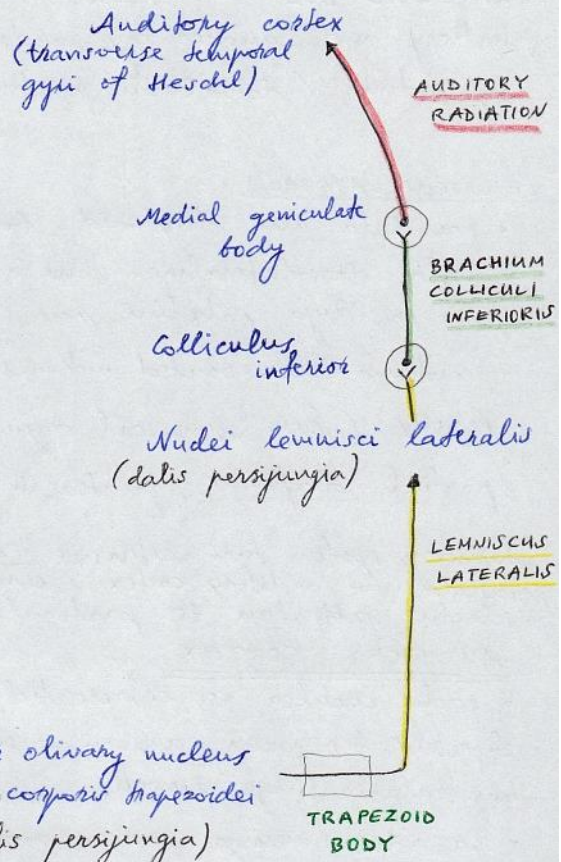 Auditory cortex
(transverse temporal
gyri of Heschl)
AUDITORY
RADIATION
Medial geniculate
body
BRACHIUM
COLLICULI
INFERIORIS
Colliculus
inferior
Nuclei lemnisci lateralis
(dalis persijungia)
LEMNISCUS
LATERALIS
olivary nucleus
corporis trapezoidei
persijungia)
TRAPEZOID
BODY